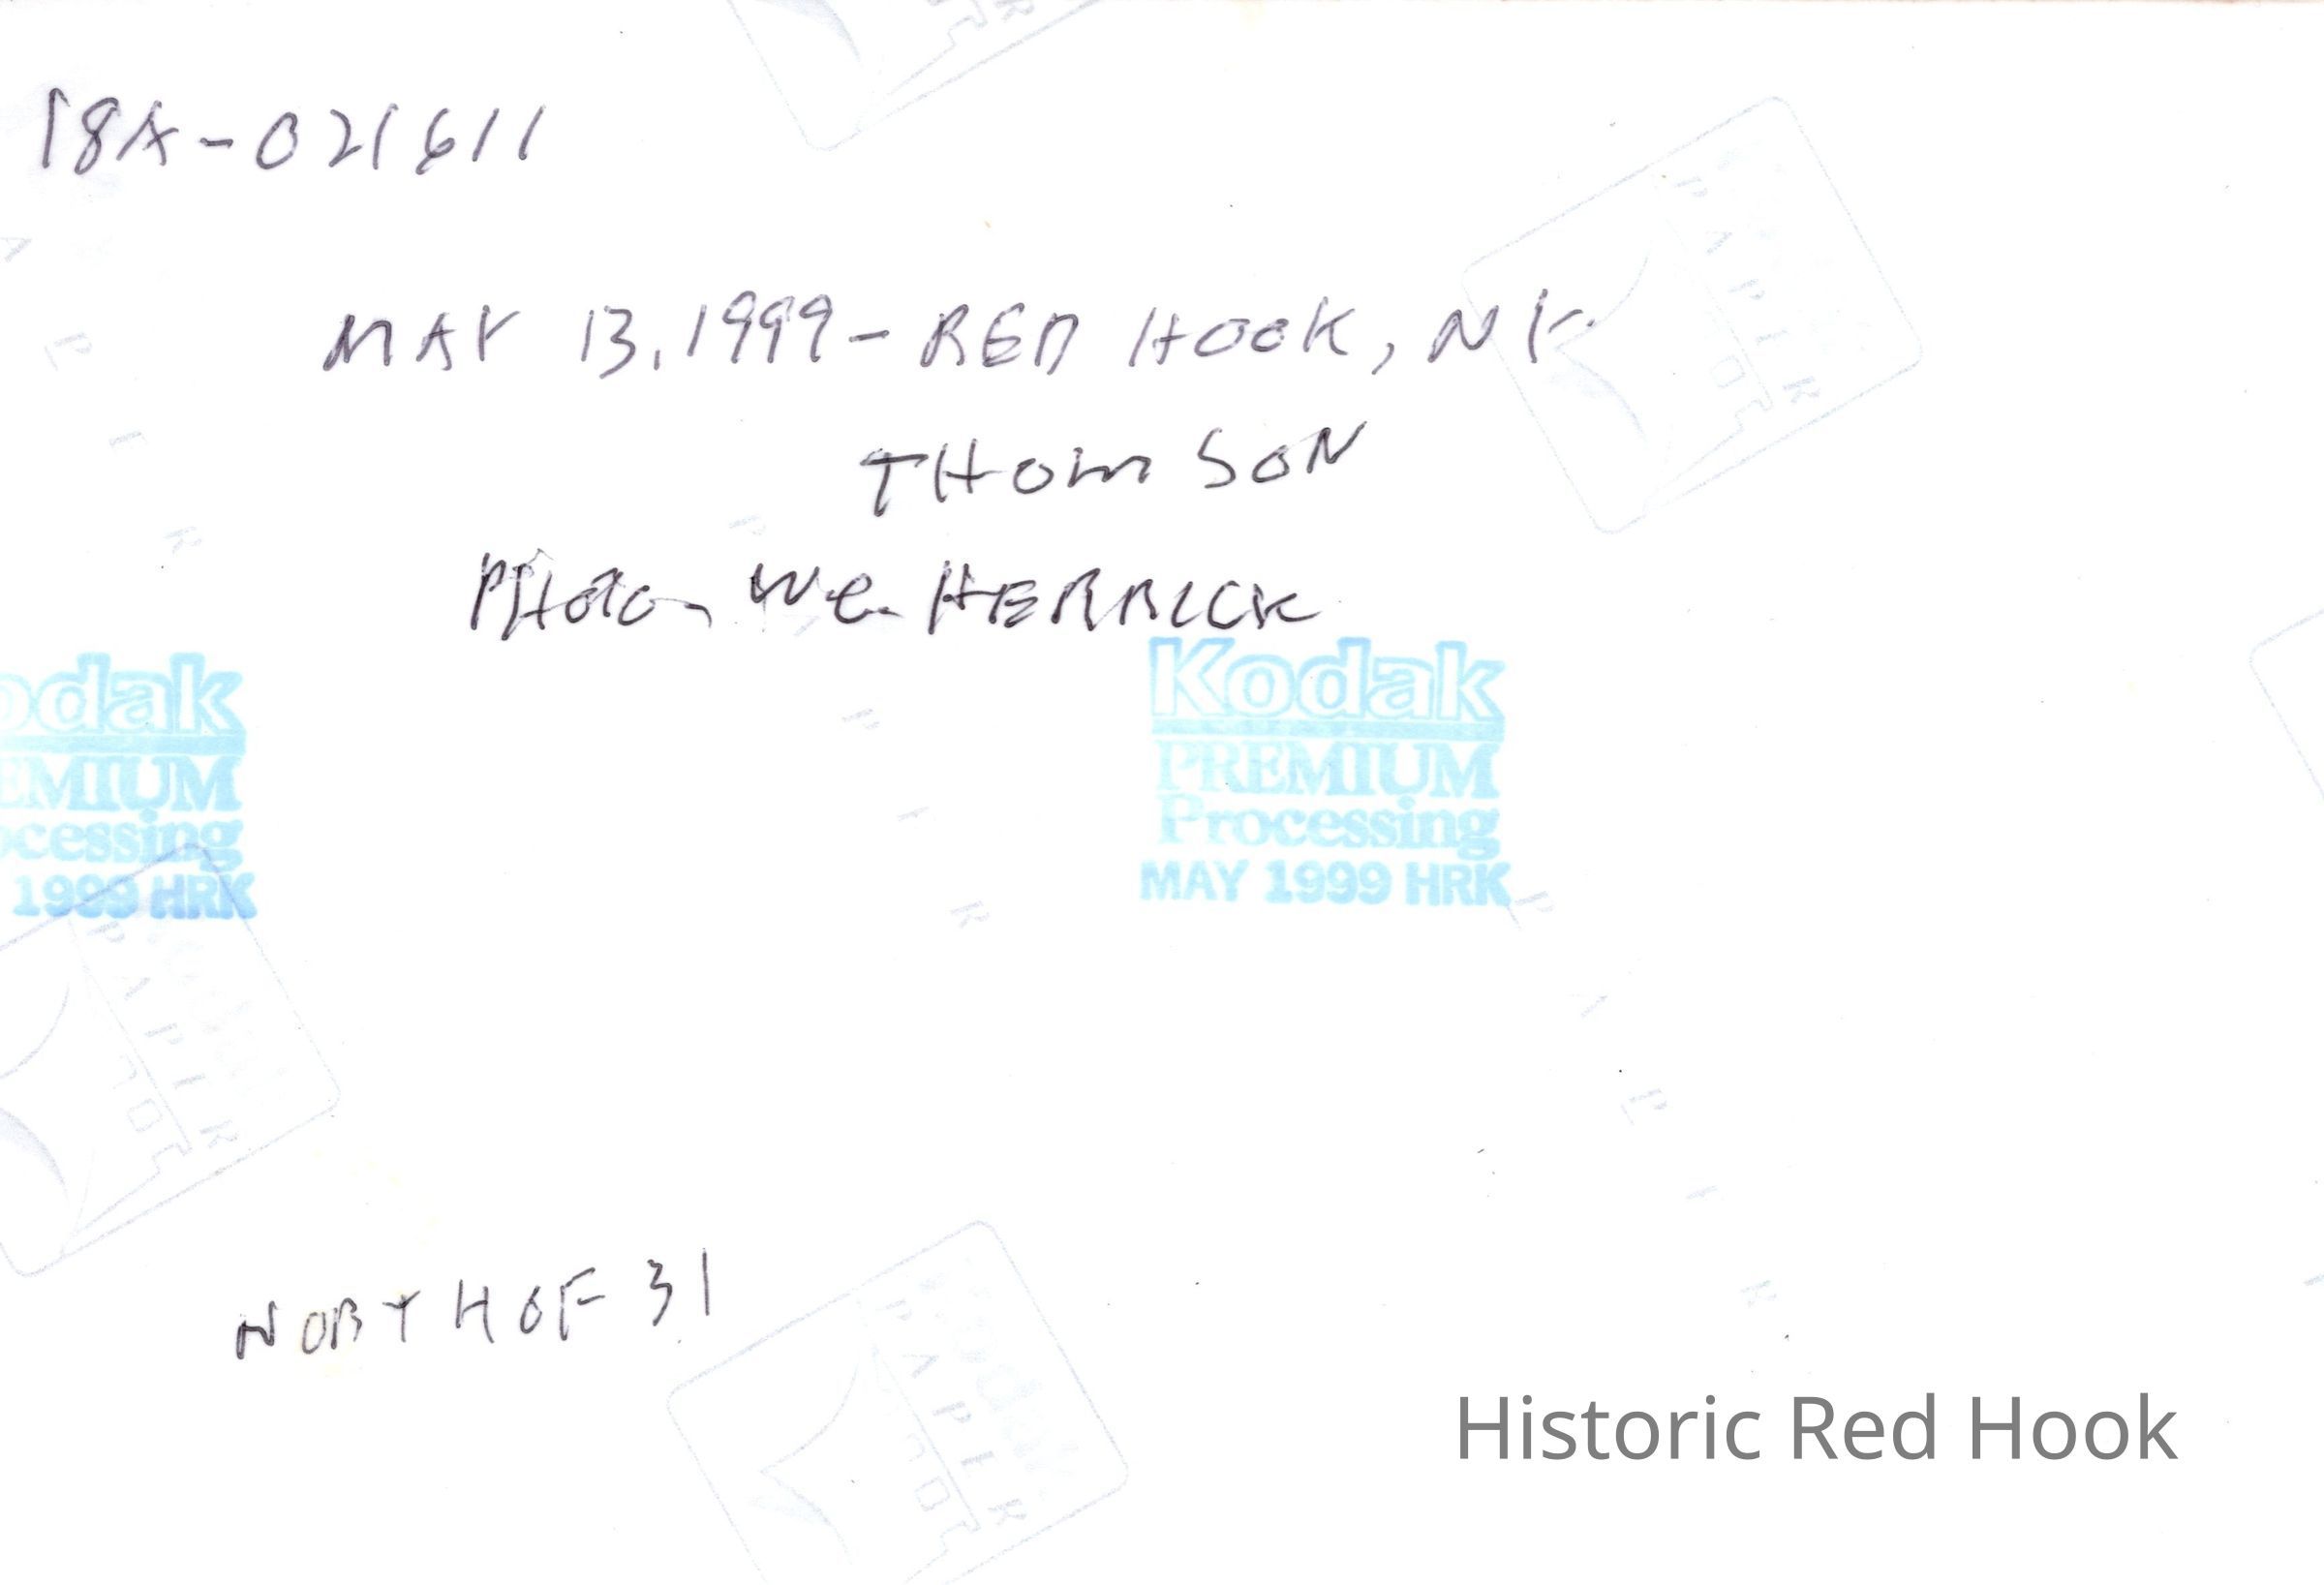 18A-021611
MAY 13, 1999 - RED HOOK, NY.
THOMSON
PHOTO- W.C. HERRICK
odak
EMIUM
ocessing
1999 HRK
Kodak
PREMIUM
Processing
MAY 1999 HRK
NORTH OF 31
Historic Red Hook